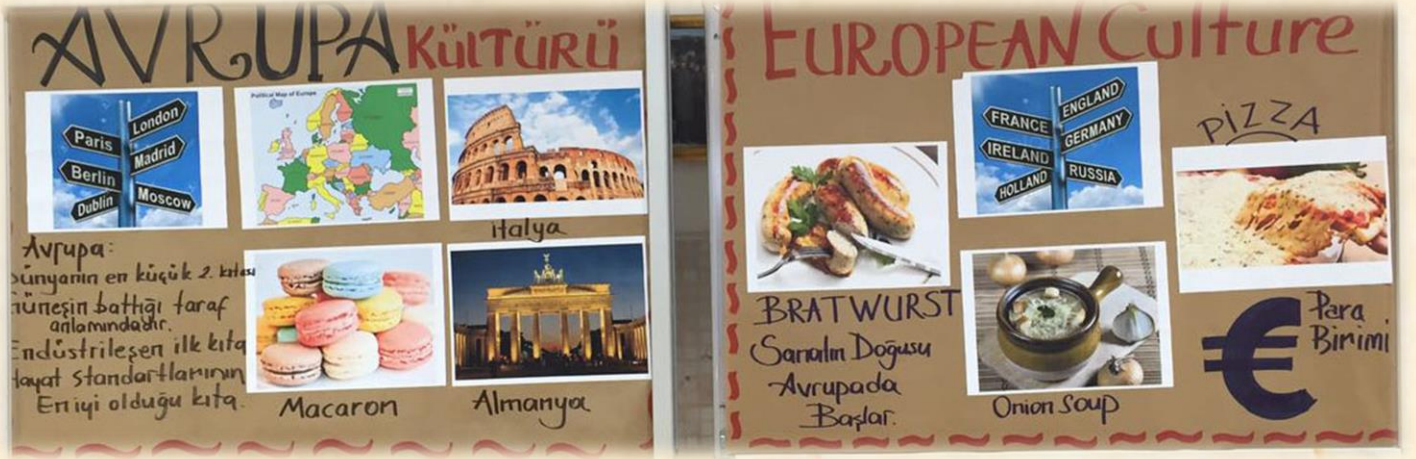 AVRUPA KÜLTÜRÜ
Paris
London
Berlin
Madrid
Dublin
Moscow
Political Map of Europe
italya
Avrupa:
Dünyanın en küçük 2. kıtası
Güneşin battığı taraf
anlamındadır.
Endüstrileşen ilk kıta
Hayat standartlarının
En iyi olduğu kıta.
Macaron
Almanya
EUROPEAN Culture
FRANCE
ENGLAND
IRELAND
GERMANY
HOLLAND
RUSSIA
PİZZA
BRATWURST
Sanatın Doğuşu
Avrupada
Başlar.
Onion Soup
€ Para
Birimi